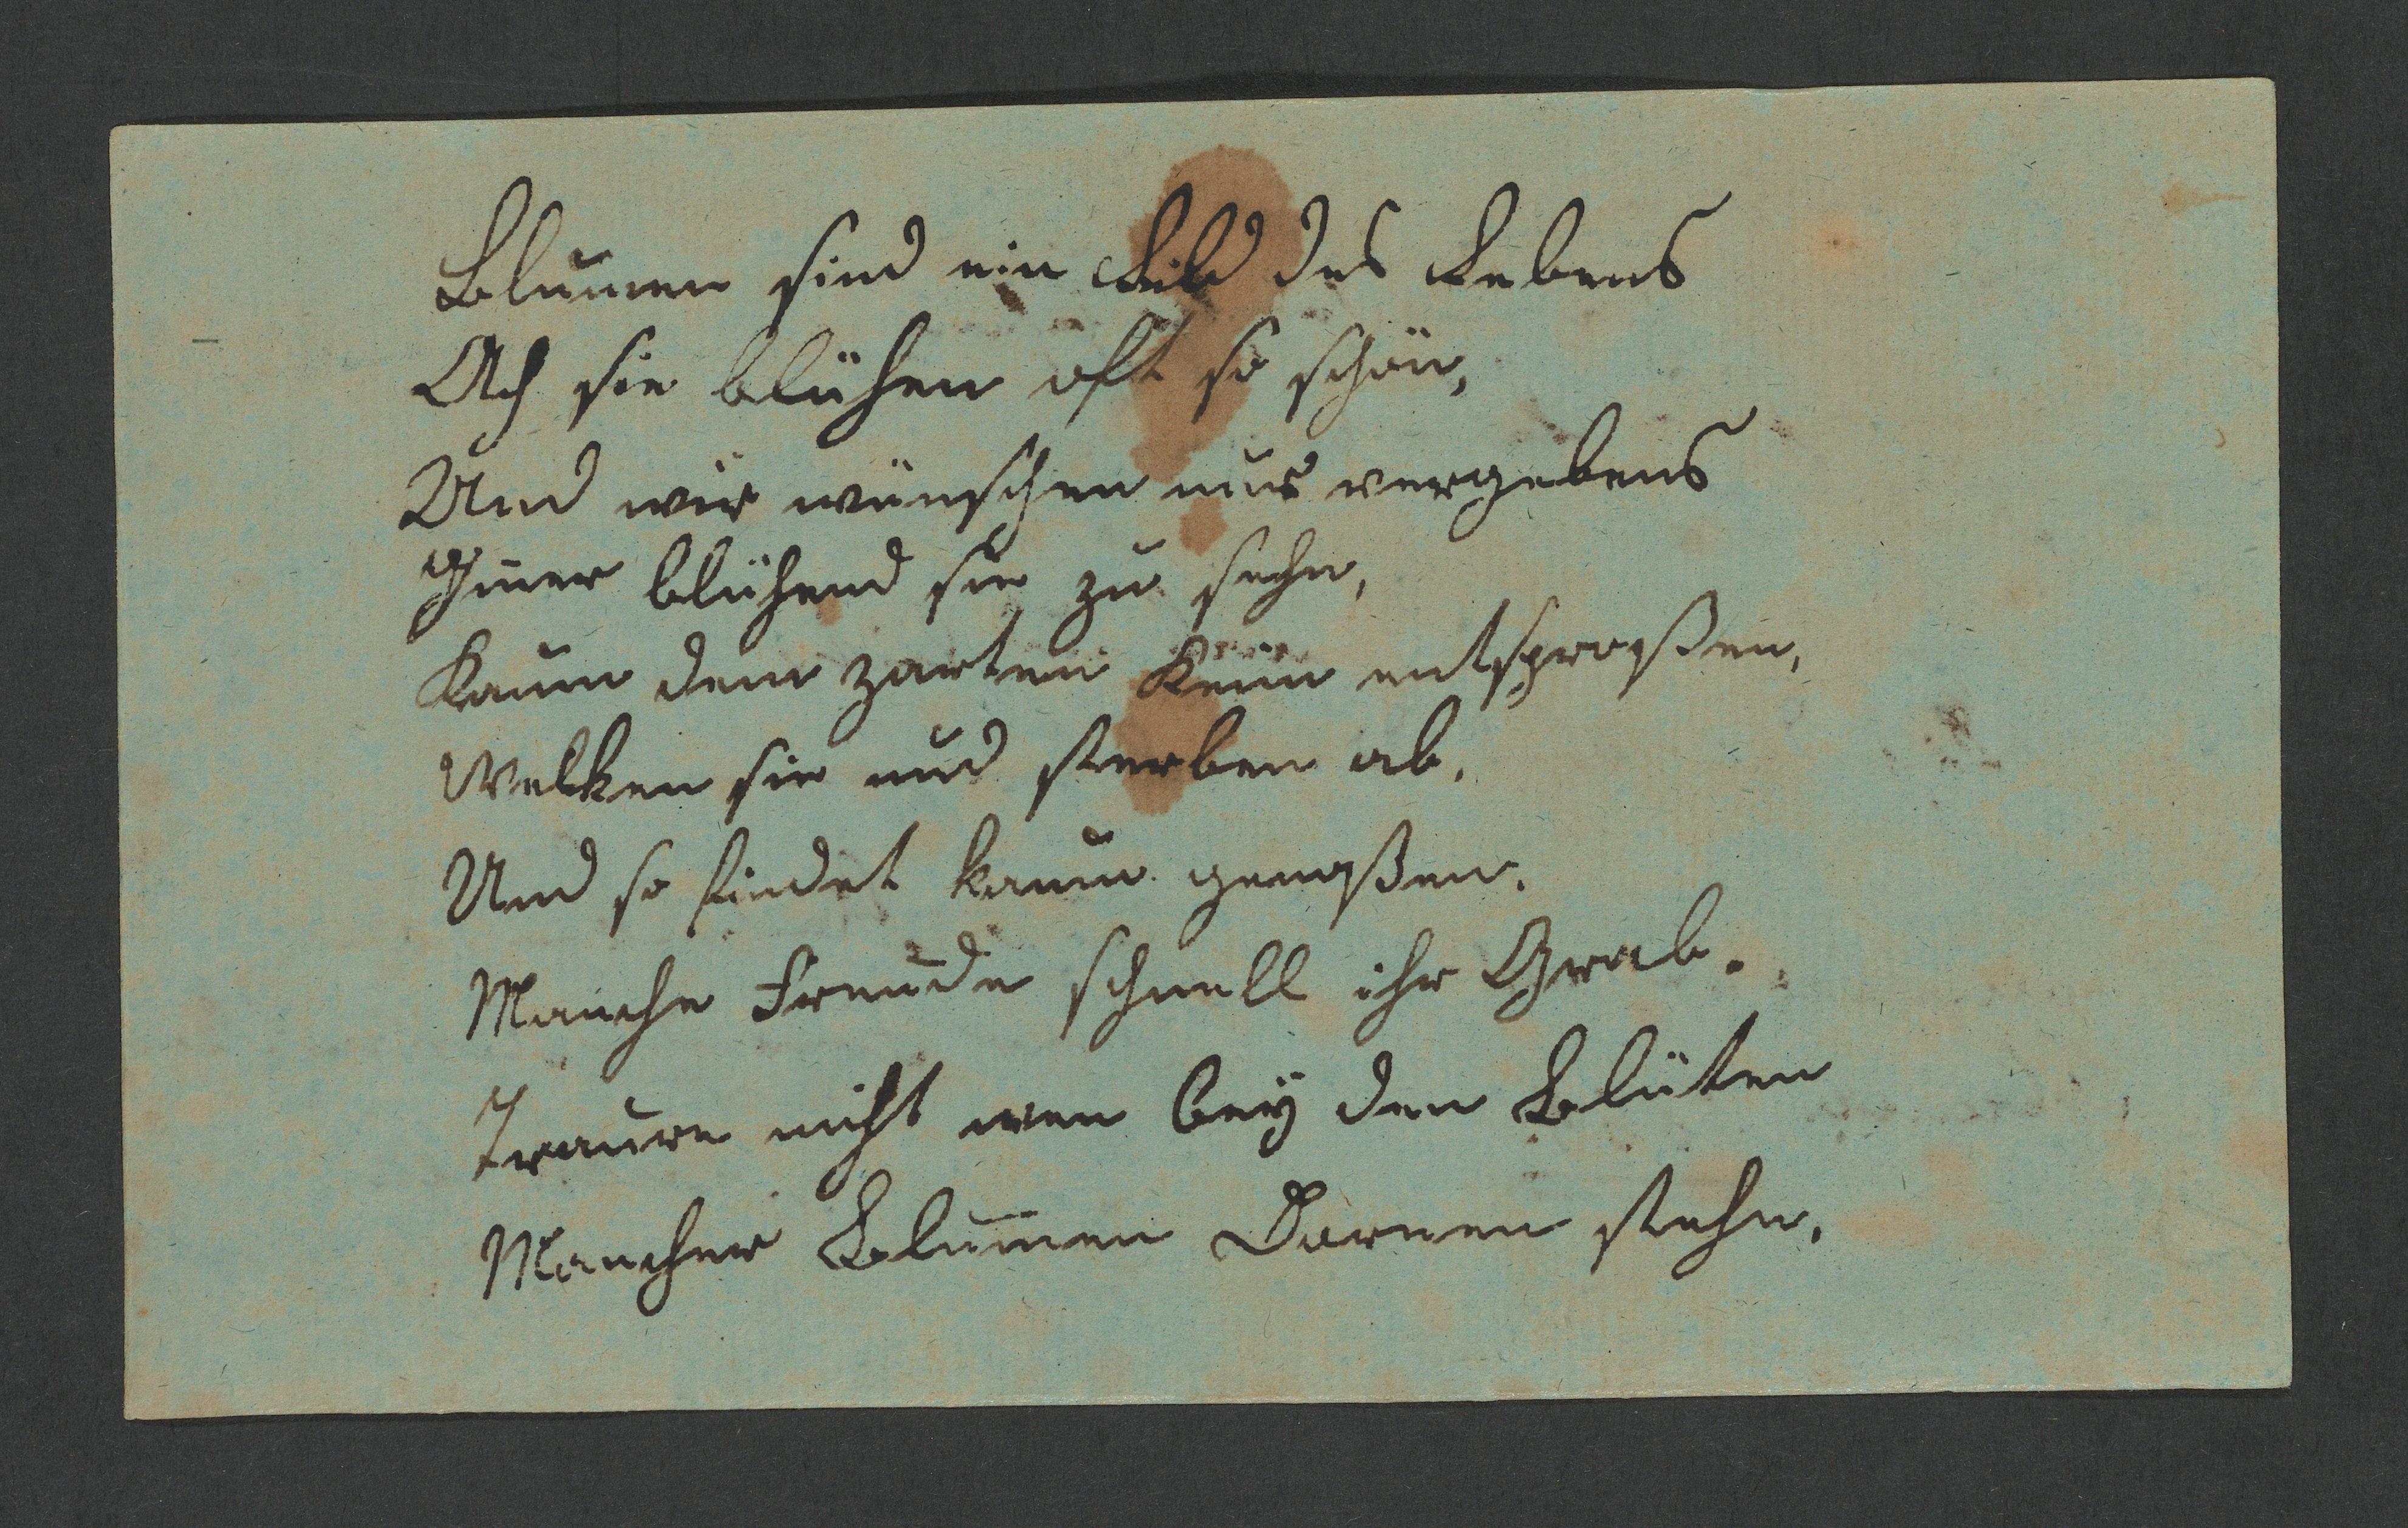 Blumen sind ein Bild des Lebens
Ach sie blühen oft so schön,
Und wir wünschen nur vergebens
Im̄er blühend sie zu sehn,
Kaum dem zarten Keim entsproßen,
Welken sie und sterben ab,
Und so findet kaum genoßen,
Manche Freude schnell ihr Grab.
Traure nicht wen bey den Blüten
Mancher Blum̄en Dornen stehn,